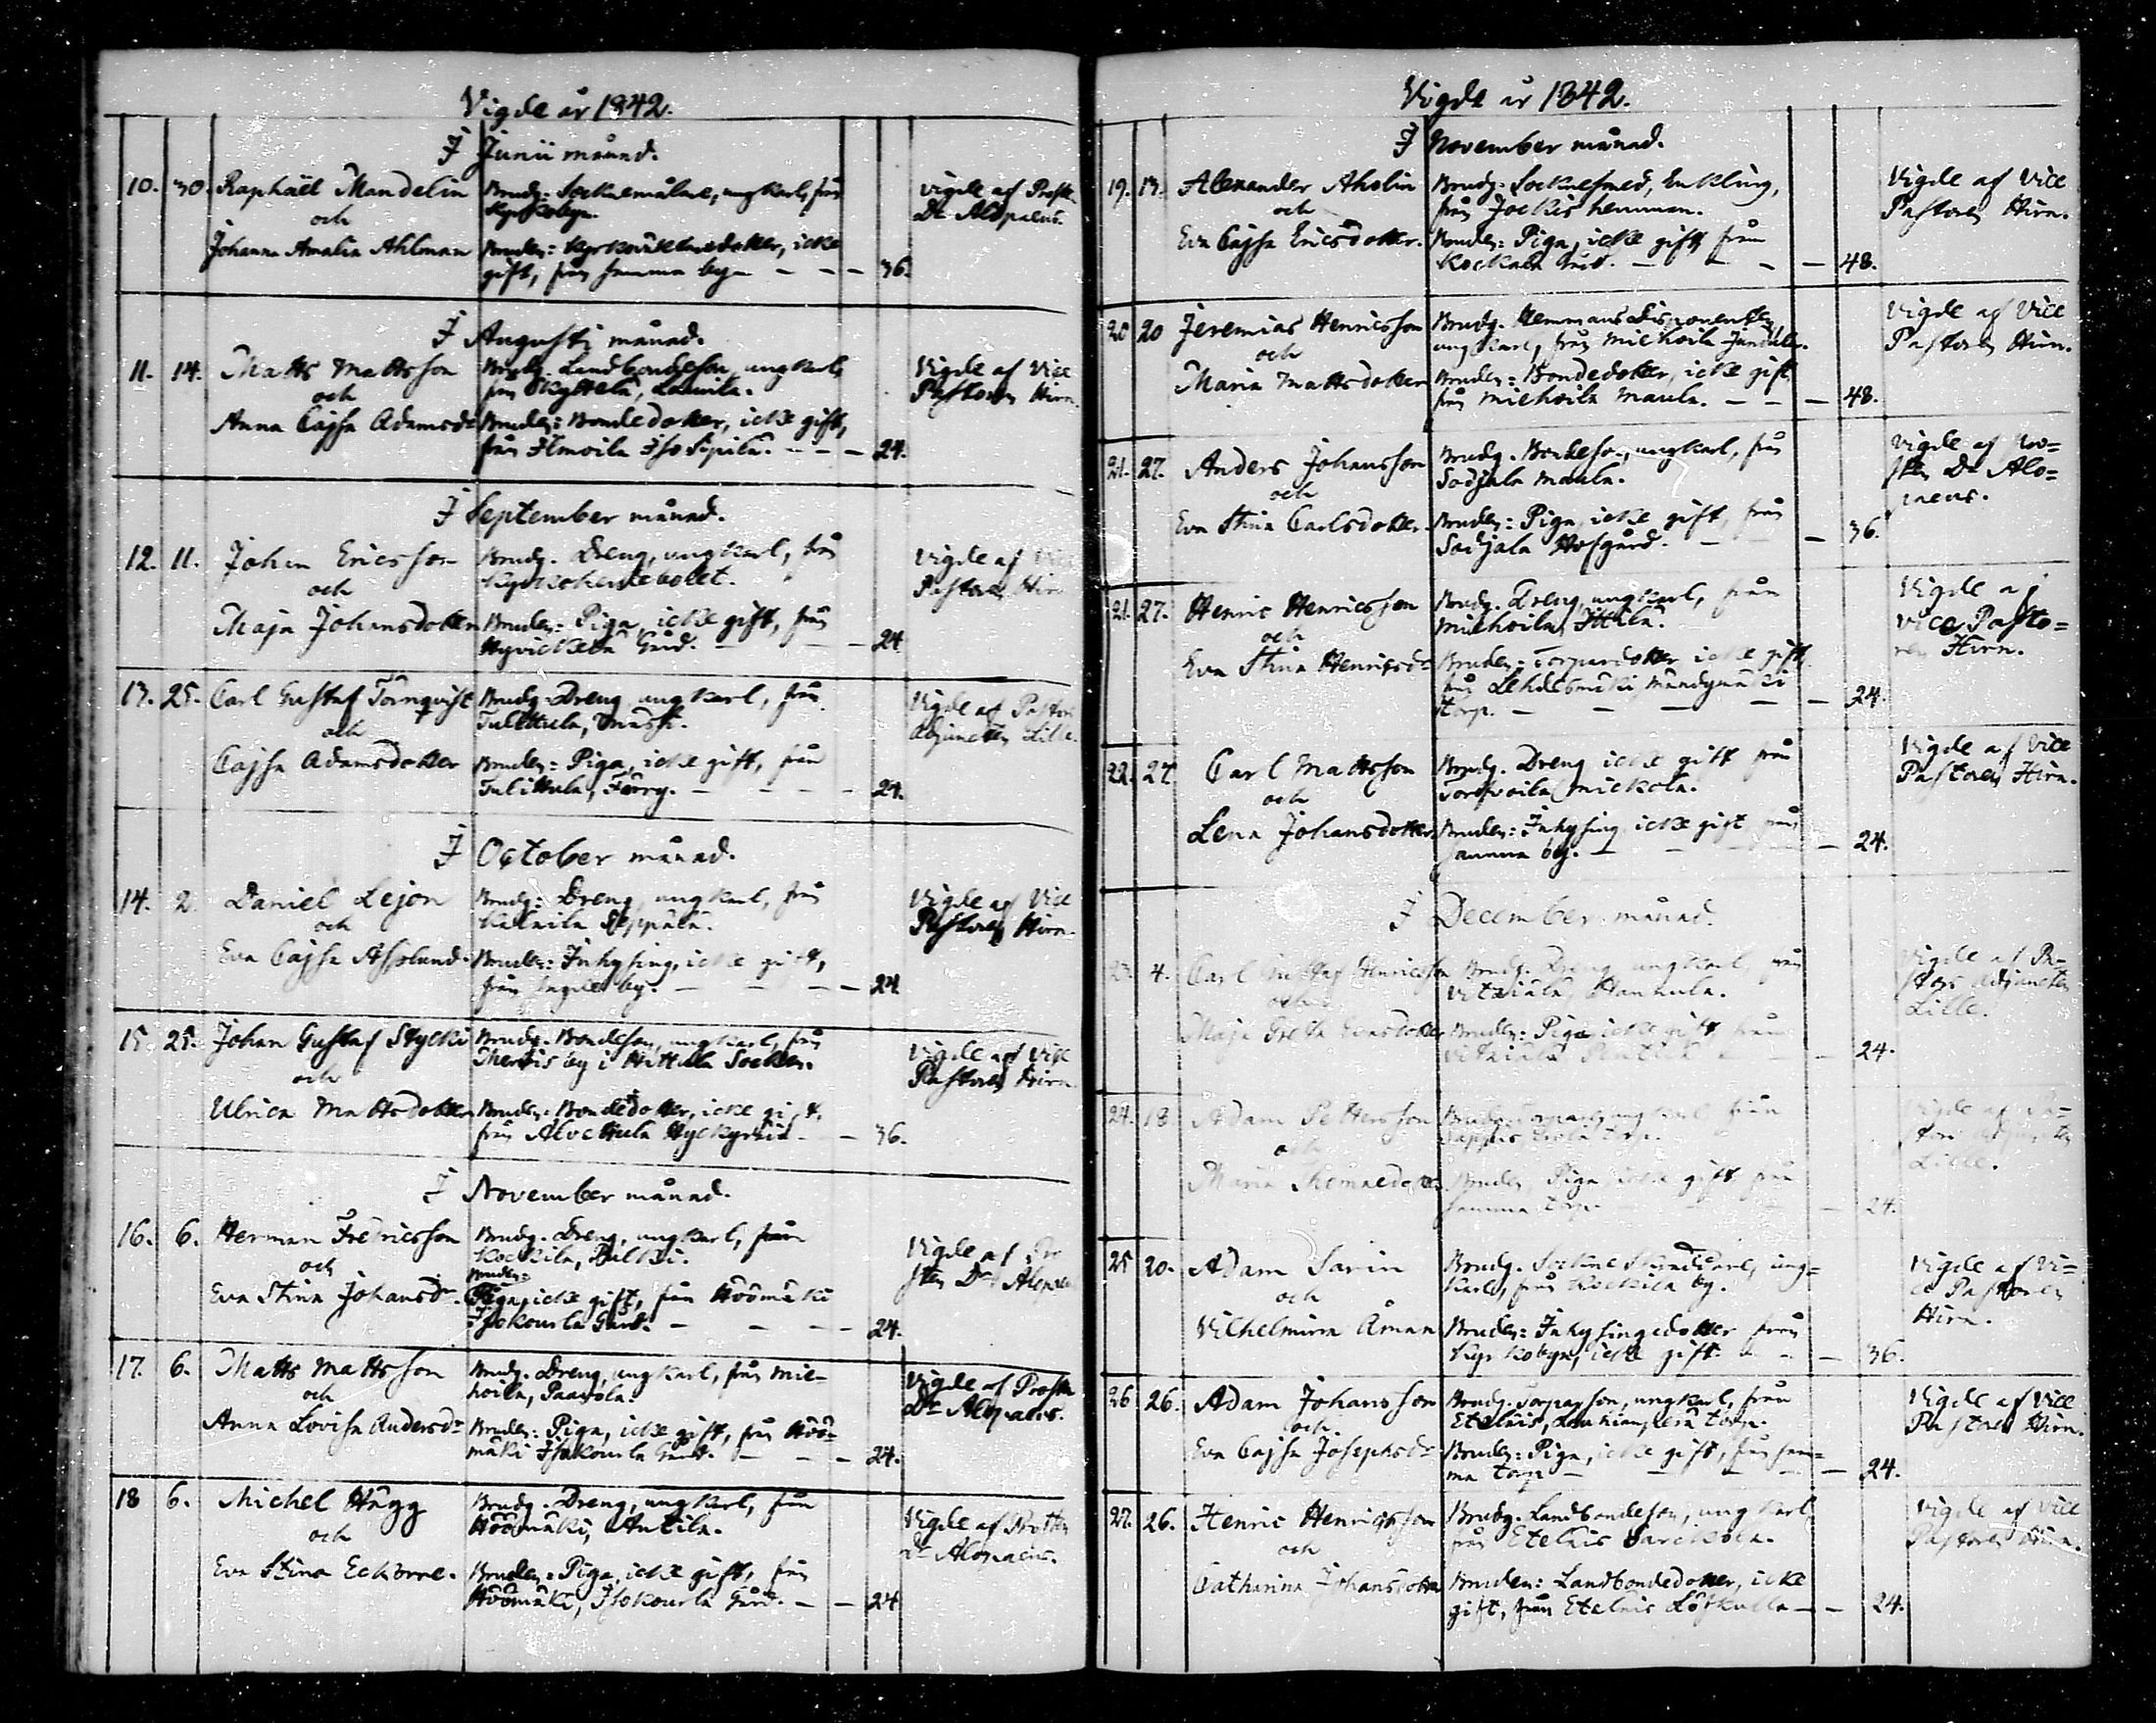 Vigde år 1842.
I Junii månad.
10. 30. Raphaël Mandelin Brudg: Socknemålare, ungkarl, från
och Kyrkobyn.
Johanna Amalia Ahlman Bruden: dotter, icke
gift, från samma by — — — 36.
Vigde af
Dr Alopaeus.
I Augusti månad.
11. 14. Matts Mattsson Brudg. Landbondeson, ungkarl,
och från Laurila.
Anna Cajsa Adamsdr Bruden: Bondedotter, icke gift,
från Ilmoila Iso Sipilä. — — — 24.
Vigde af Vice
Pastoren Hirn.
I September månad.
12. 11. Johan Ericsson Brudg. Dreng, ungkarl, från
och
Maja Johansdotter Bruden: Piga, icke gift, från
Gård. — — — 24
Vigde af Vice
Pastoren Hirn
13. 25. Carl Gustaf Törnqvist Brudg. Dreng, ungkarl, från
och
Cajsa Adamsdotter Bruden: Piga, icke gift, från
— — — — 24.
Vigde af Pastors
Adjuncten Lille.
I October månad.
14. 2. Daniel Lejon Brudg: Dreng, ungkarl, från
och Seppälä.
Eva Cajsa Asplund. Bruden: Inhysing, icke gift,
från by. — — — — 24
Vigde af Vice
Pastoren Hirn.
15 25. Johan Gustaf Stycki Brudg. Bondeson, ungkarl, från
och by i Hattula Socken.
Ulrica Mattsdotter Bruden: Bondedotter, icke gift,
från — 36.
Vigde af Vice
Pastoren Hirn
I November månad.
16. 6. Herman Fredricsson Brudg. Dreng, ungkarl, från
och Kockila,
Bruden:
Eva Stina Johansdr. Piga, icke gift, från Höömäki
Isokourla Gård. — — — — 24.
Vigde af Pro
sten Dr
17. 6. Matts Mattsson Brudg. Dreng, ungkarl, från Mie-
och hoila, Paavola.
Anna Lovisa Andersdr Bruden: Piga, icke gift, från Höö-
mäki Isokourla Gård. — — — 24.
Vigde af Prosten
Dr Alopaeus.
18 6. Michel Hägg Brudg. Dreng, ungkarl, från
och Höömäki, Antila.
Eva Stina Eckorre. Bruden: Piga, icke gift, från
Höömäki, Isokourla Gård. — — 24
Vigde af Prosten
Dr Alopaeus.
Vigde år 1842.
I November månad.
19. 13. Alexander Aholin Brudg: Socknesmed, Enkling,
och från Jockis hemman.
Eva Cajsa Ericsdotter. Bruden: Piga, icke gift, från
Gård. — — — — 48.
Vigde af Vice
Pastoren Hirn.
20 20 Jeremias Henricsson Brudg. Hemmans Disponenten,
och ungkarl, från Miehoila
Maria Mattsdotter Bruden: Bondedotter, icke gift
från Miehoila Maula. — — — 48.
Vigde af Vice
Pastoren Hirn.
21. 27. Anders Johansson Brudg. Bondeson, ungkarl, från
och Sadjala Maula.
Eva Stina Carlsdotter Bruden: Piga, icke gift, från
Sadjala Hofgård. — — — 36.
Vigde af Pro=
sten Dr Alo=
paeus.
21. 27. Henric Henricsson Brudg. Dreng, ungkarl, från
och Miehoila,
Eva Stina Henricsdr Bruden: Torpardotter, icke gift
från Lehdesmäki
torp. — — — — — 24.
Vigde af
Vice Pasto=
ren Hirn.
22. 27. Carl Mattsson Brudg. Dreng icke gift från
och Mickola.
Lena Johansdotter Bruden: Inhysing icke gift från
samma by. — — — — 24.
Vigde af Vice
Pastoren Hirn.
I December månad.
23. 4. Carl Gustaf Henricsson Brudg. Dreng ungkarl, från
och Hannula.
Maja Greta Bruden: Piga, icke gift från
— 24.
Vigde af Pa-
stors Adjuncten
Lille.
24. 18. Adam Pettersson Brudg. ungkarl från
och torp.
Maria Thomaedotter Bruden, Piga icke gift från
samma torp. — 24.
Vigde af Pa-
stors Adjuncten
Lille.
25 20. Adam Sarin Brudg. Sockne Skräddare, ung-
och karl, från Kockila by.
Vilhelmina Åman Bruden: Inhysingedotter från
Kyrkobyn, icke gift. — — — 36.
Vigde af Vi-
ce Pastoren
Hirn.
26 26. Adam Johansson Brudg. Torparson, ungkarl, från
och Eteläis, torp.
Eva Cajsa Josephsdr Bruden: Piga, icke gift, från sam-
ma torp — — — — 24.
Vigde af Vice
Pastoren Hirn.
27. 26. Henric Henricsson Brudg. Landbondeson, ungkarl
och från Eteläis
Catharina Johansdotter Bruden: Landbondedotter, icke
gift, från Eteläis — — 24.
Vigde af Vice
Pastoren Hirn.